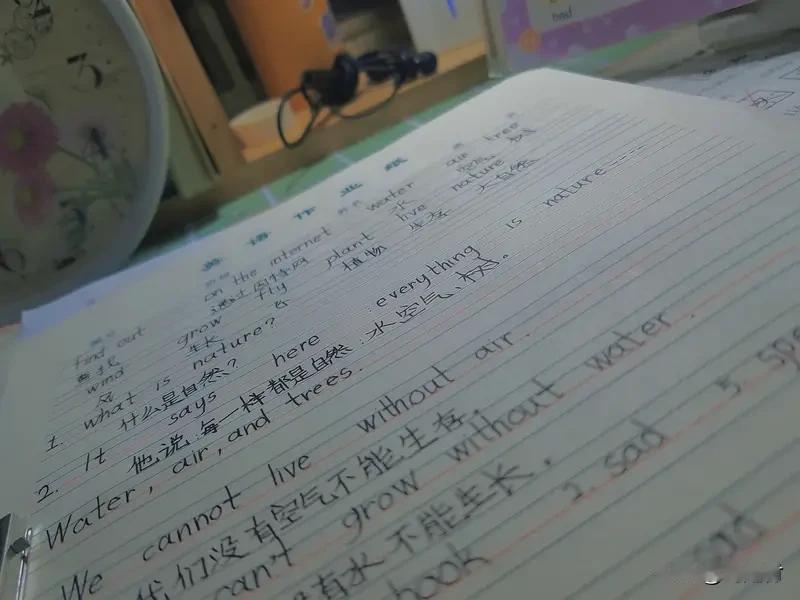 bad
3
英语作业纸
find out on the internet water air tree
查找 通过因特网 水 空气 树
wind grow fly plant live nature
风 生长 飞 植物 生存 大自然
1. what is nature?
什么是自然?
2. It says here :everything is nature----
他说:每一样都是自然:水空气、树。
Water, air, and trees.
We cannot live without air.
我们没有空气不能生存.
can't grow without water.
没有水不能生长.
book 2. sad 5. spe
sad